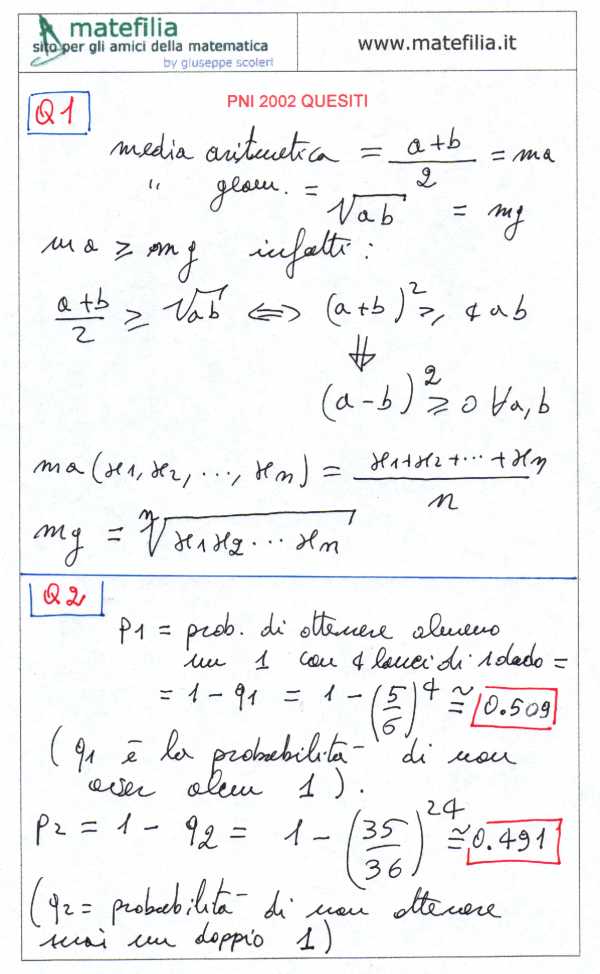 matefilia
sito per gli amici della matematica
by giuseppe scoleri
www.matefilia.it
PNI 2002 QUESITI
Q1
media aritmetica = (a+b)/2 = ma
" geom. = √ab = mg
ma ≥ mg infatti:
(a+b)/2 ≥ √ab ⇔ (a+b)² ≥ 4ab
⇓
(a-b)² ≥ 0 ∀a,b
ma(x1, x2, ..., xn) = (x1+x2+...+xn)/n
mg = ⁿ√x1x2...xn
Q2
p1 = prob. di ottenere almeno
un 1 con 4 lanci di 1 dado =
= 1 - q1 = 1 - (5/6)⁴ ≅ 0.509
(q1 è la probabilità di non
aver alcun 1).
p2 = 1 - q2 = 1 - (35/36)²⁴ ≅ 0.491
(q2 = probabilità di non ottenere
mai un doppio 1)